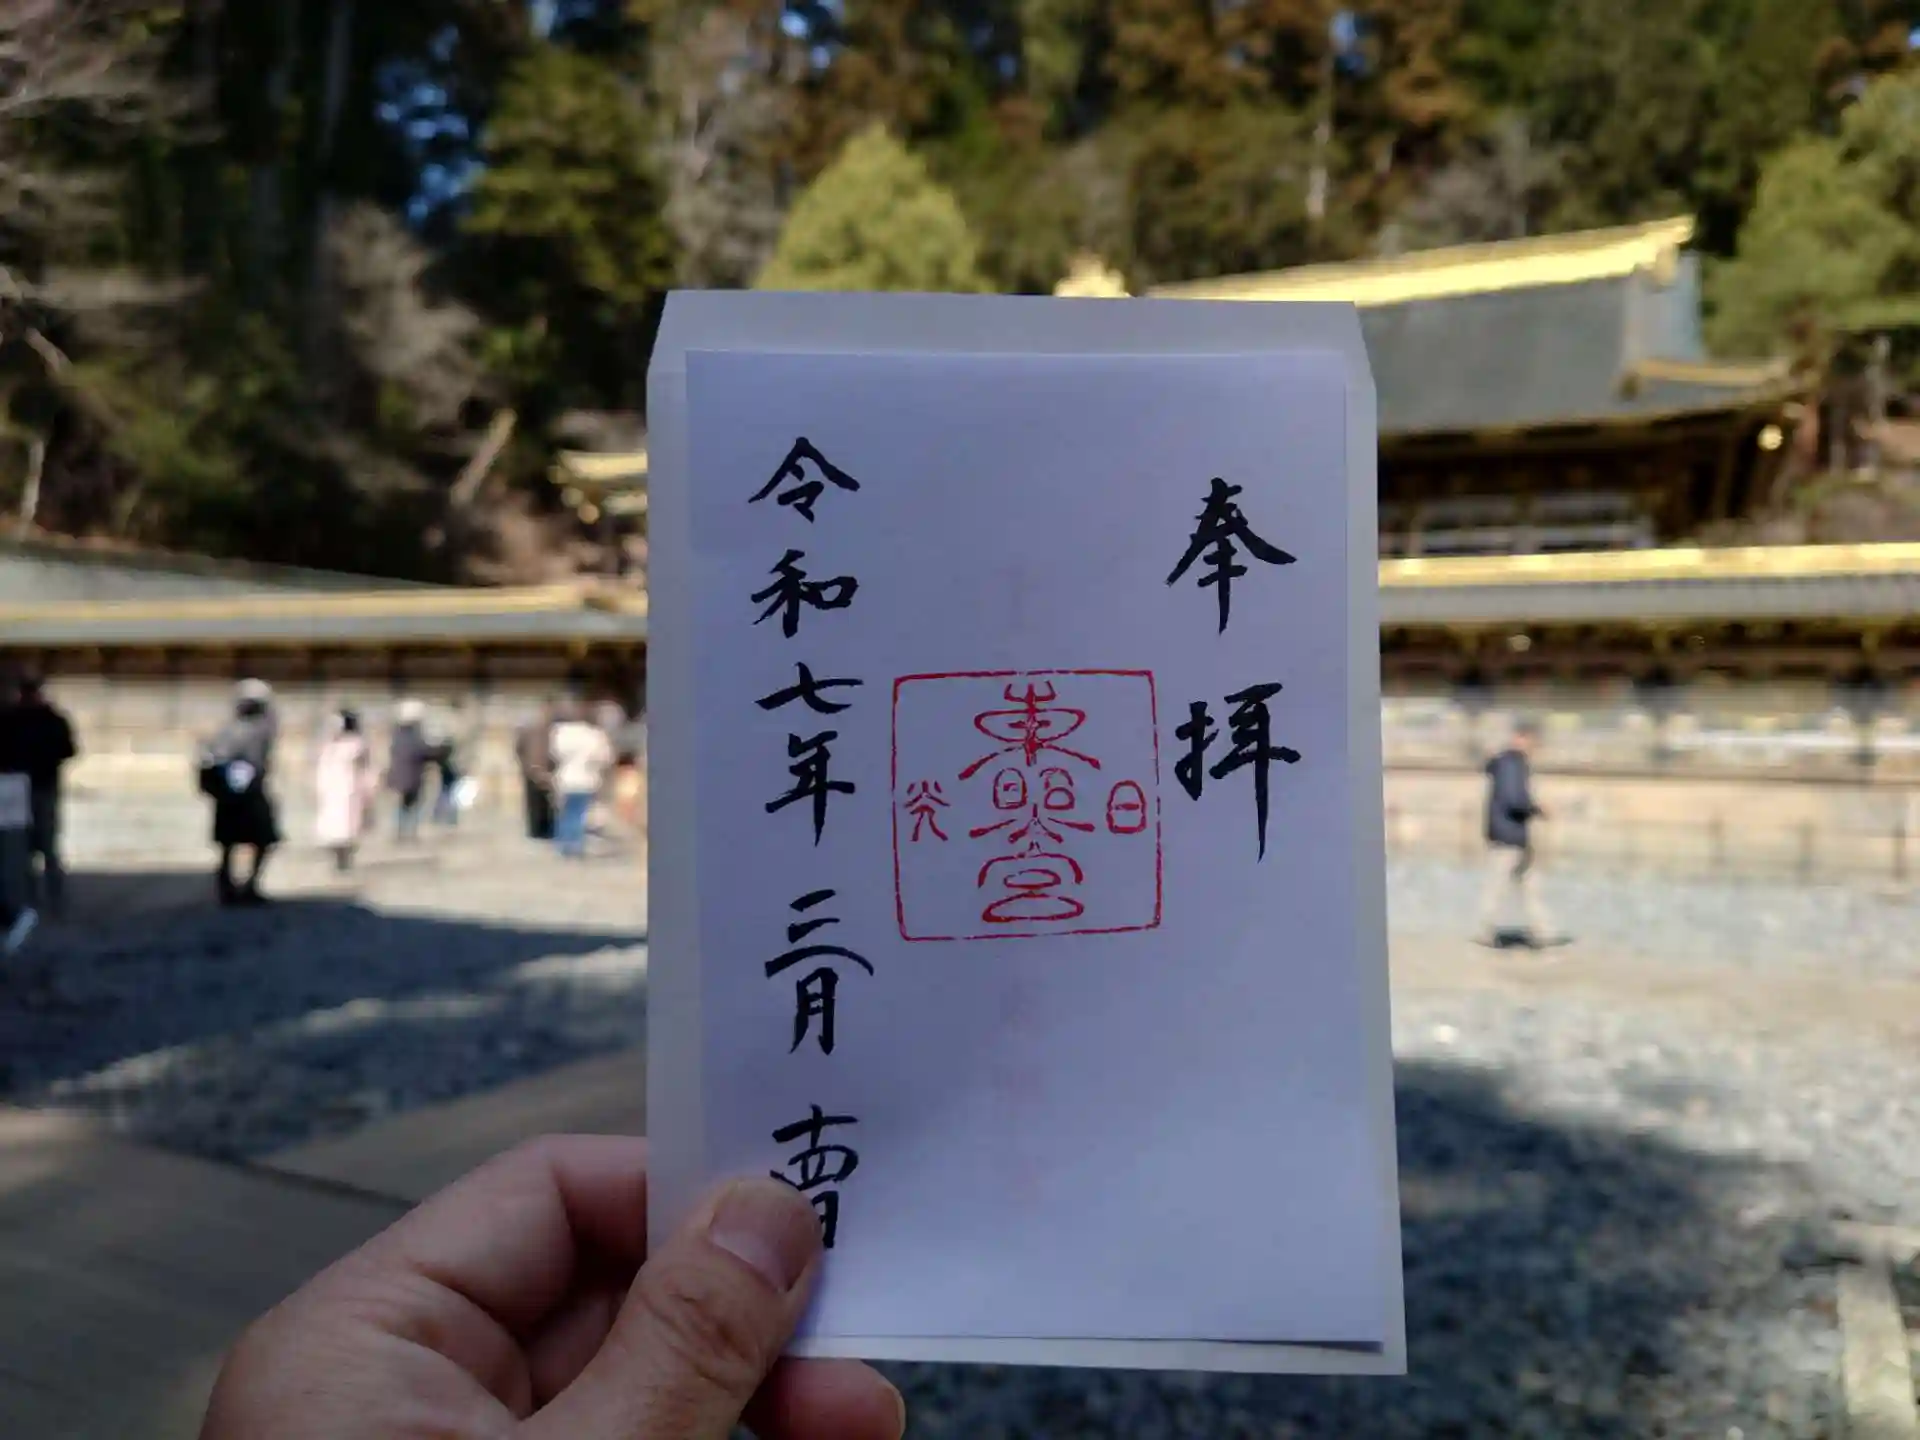 奉拝
日光
東照宮
令和七年三月十四日